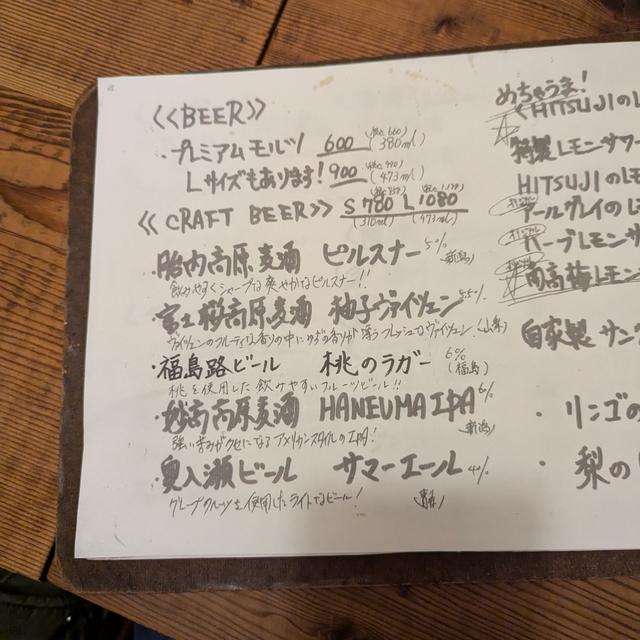 <<BEER>>
・プレミアムモルツ 600 (380ml)
Lサイズもあります! 900 (473ml)
<<CRAFT BEER>> S 780 L 1080
(310ml) (473ml)
・胎内高原麦酒 ピルスナー 5% (新潟)
飲みやすくシャープな爽やかなピルスナー!!
・富士桜高原麦酒 柚子ヴァイツェン 5.5%
ヴァイツェンのフルーティな香りの中にゆず香りが漂うフレッシュなヴァイツェン! (山梨)
・福島路ビール 桃のラガー 6% (福島)
桃を使用した飲みやすいフルーツビール!!
・妙高高原麦酒 HANEUMA IPA 6% (新潟)
強い苦みがクセになるアメリカンスタイルのIPA!
・奥入瀬ビール サマーエール 4%
グレープフルーツを使用したライトなビール! (青森)
めちゃうま!
<HITSUJIのL
特製レモンサワー
HITSUJIのレモ
アールグレイのレ
ハーブレモンサ
南高梅レモン
自家製 サン
・リンゴの
・梨の